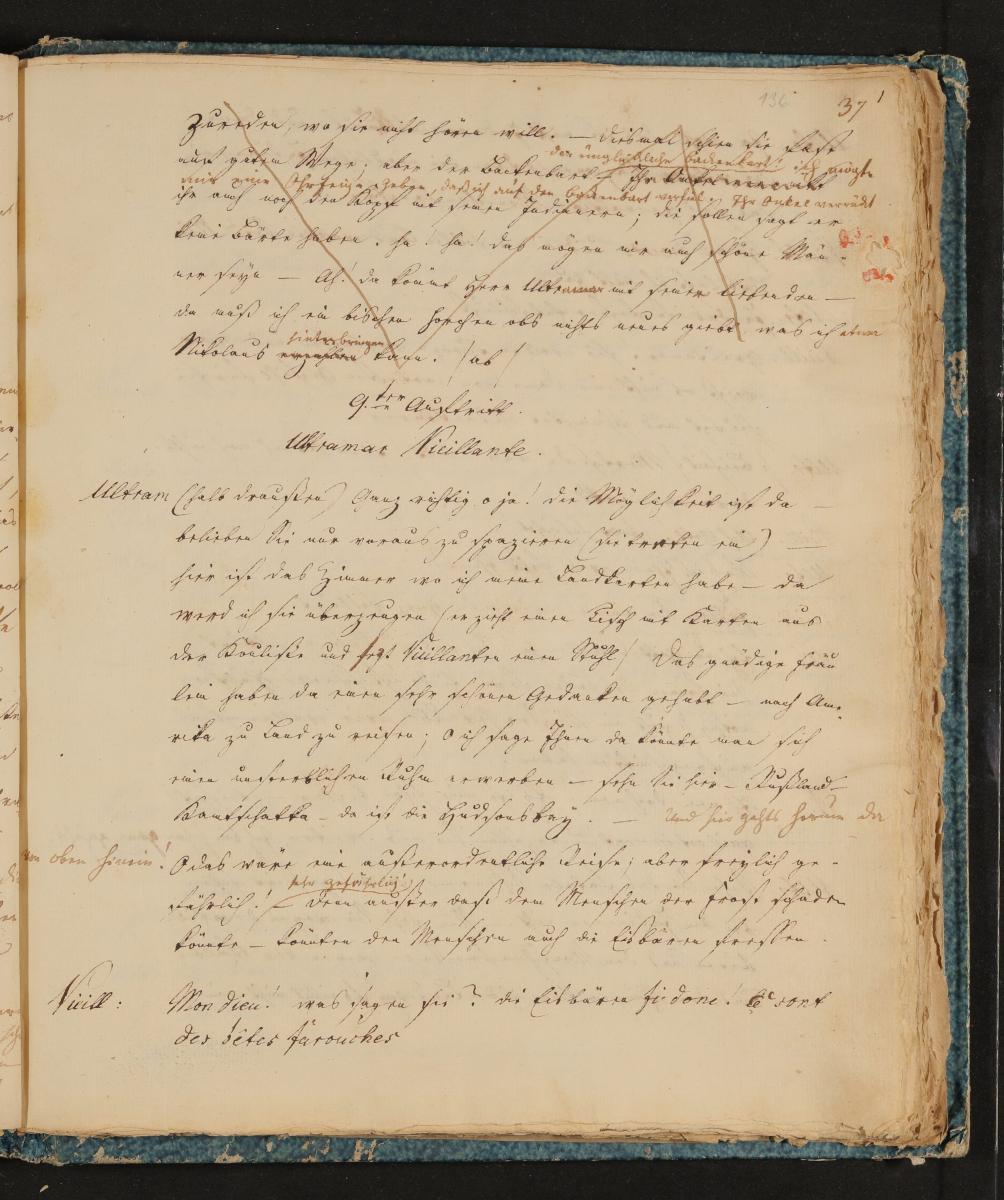 136
37
zureden, wo sie nicht hören will. — Diesmal schien sie fast
der unglückliche Backenbart! ich mögte
auf gutem Wege: aber der Backenbart — Ihr Onkel verrückt
mir eine Ohrfeige geben, daß ich auf den Backenbart verfiel; Ihr Onkel verrückt
ihr auch noch den Kopf mit seinen Indianern; die sollen sagt er
keine Bärte haben. ha! ha! das mögen mir auch schöne Män-
ner seyn — Ah! da kömmt Herr Ultramar mit seiner liebenden —
da muß ich ein bischen horchen obs nichts neues giebt was ich etwa
hinterbringen
Nikolaus erzehlen kann. /ab/
9.ter Auftritt.
Ultramar Vieillante.
Ultram (halb draußen) Ganz richtig o ja! die Möglichkeit ist da —
belieben Sie nur voraus zu spazieren (sie tretten ein) —
hier ist das Zimmer wo ich meine Landkarten habe — da
werd ich sie überzeugen (er zieht einen Tisch mit Karten aus
der Koulisse und sezt Vieillanten einen Stuhl/ Das gnädige Fräu
lein haben da einen sehr schönen Gedanken gehabt — nach Ame-
rika zu Land zu reisen; O ich sage Ihnen da könnte man sich
einen unsterblichen Ruhm erwerben — sehn Sie hier — Rußland —
Kamtschatka — da ist die Hudsonsbay. — und hier gehts herum da
von oben hinein!
O das wäre eine außerordentliche Reise; aber freylich ge-
sehr gefährlich!
fährlich! denn ausser daß dem Menschen der Frost schaden
könnte — könnten den Menschen auch die Eisbären fressen.
Vieill: Mon dieu! was sagen sie? die Eisbären fi donc! ce sont
des bêtes farouches